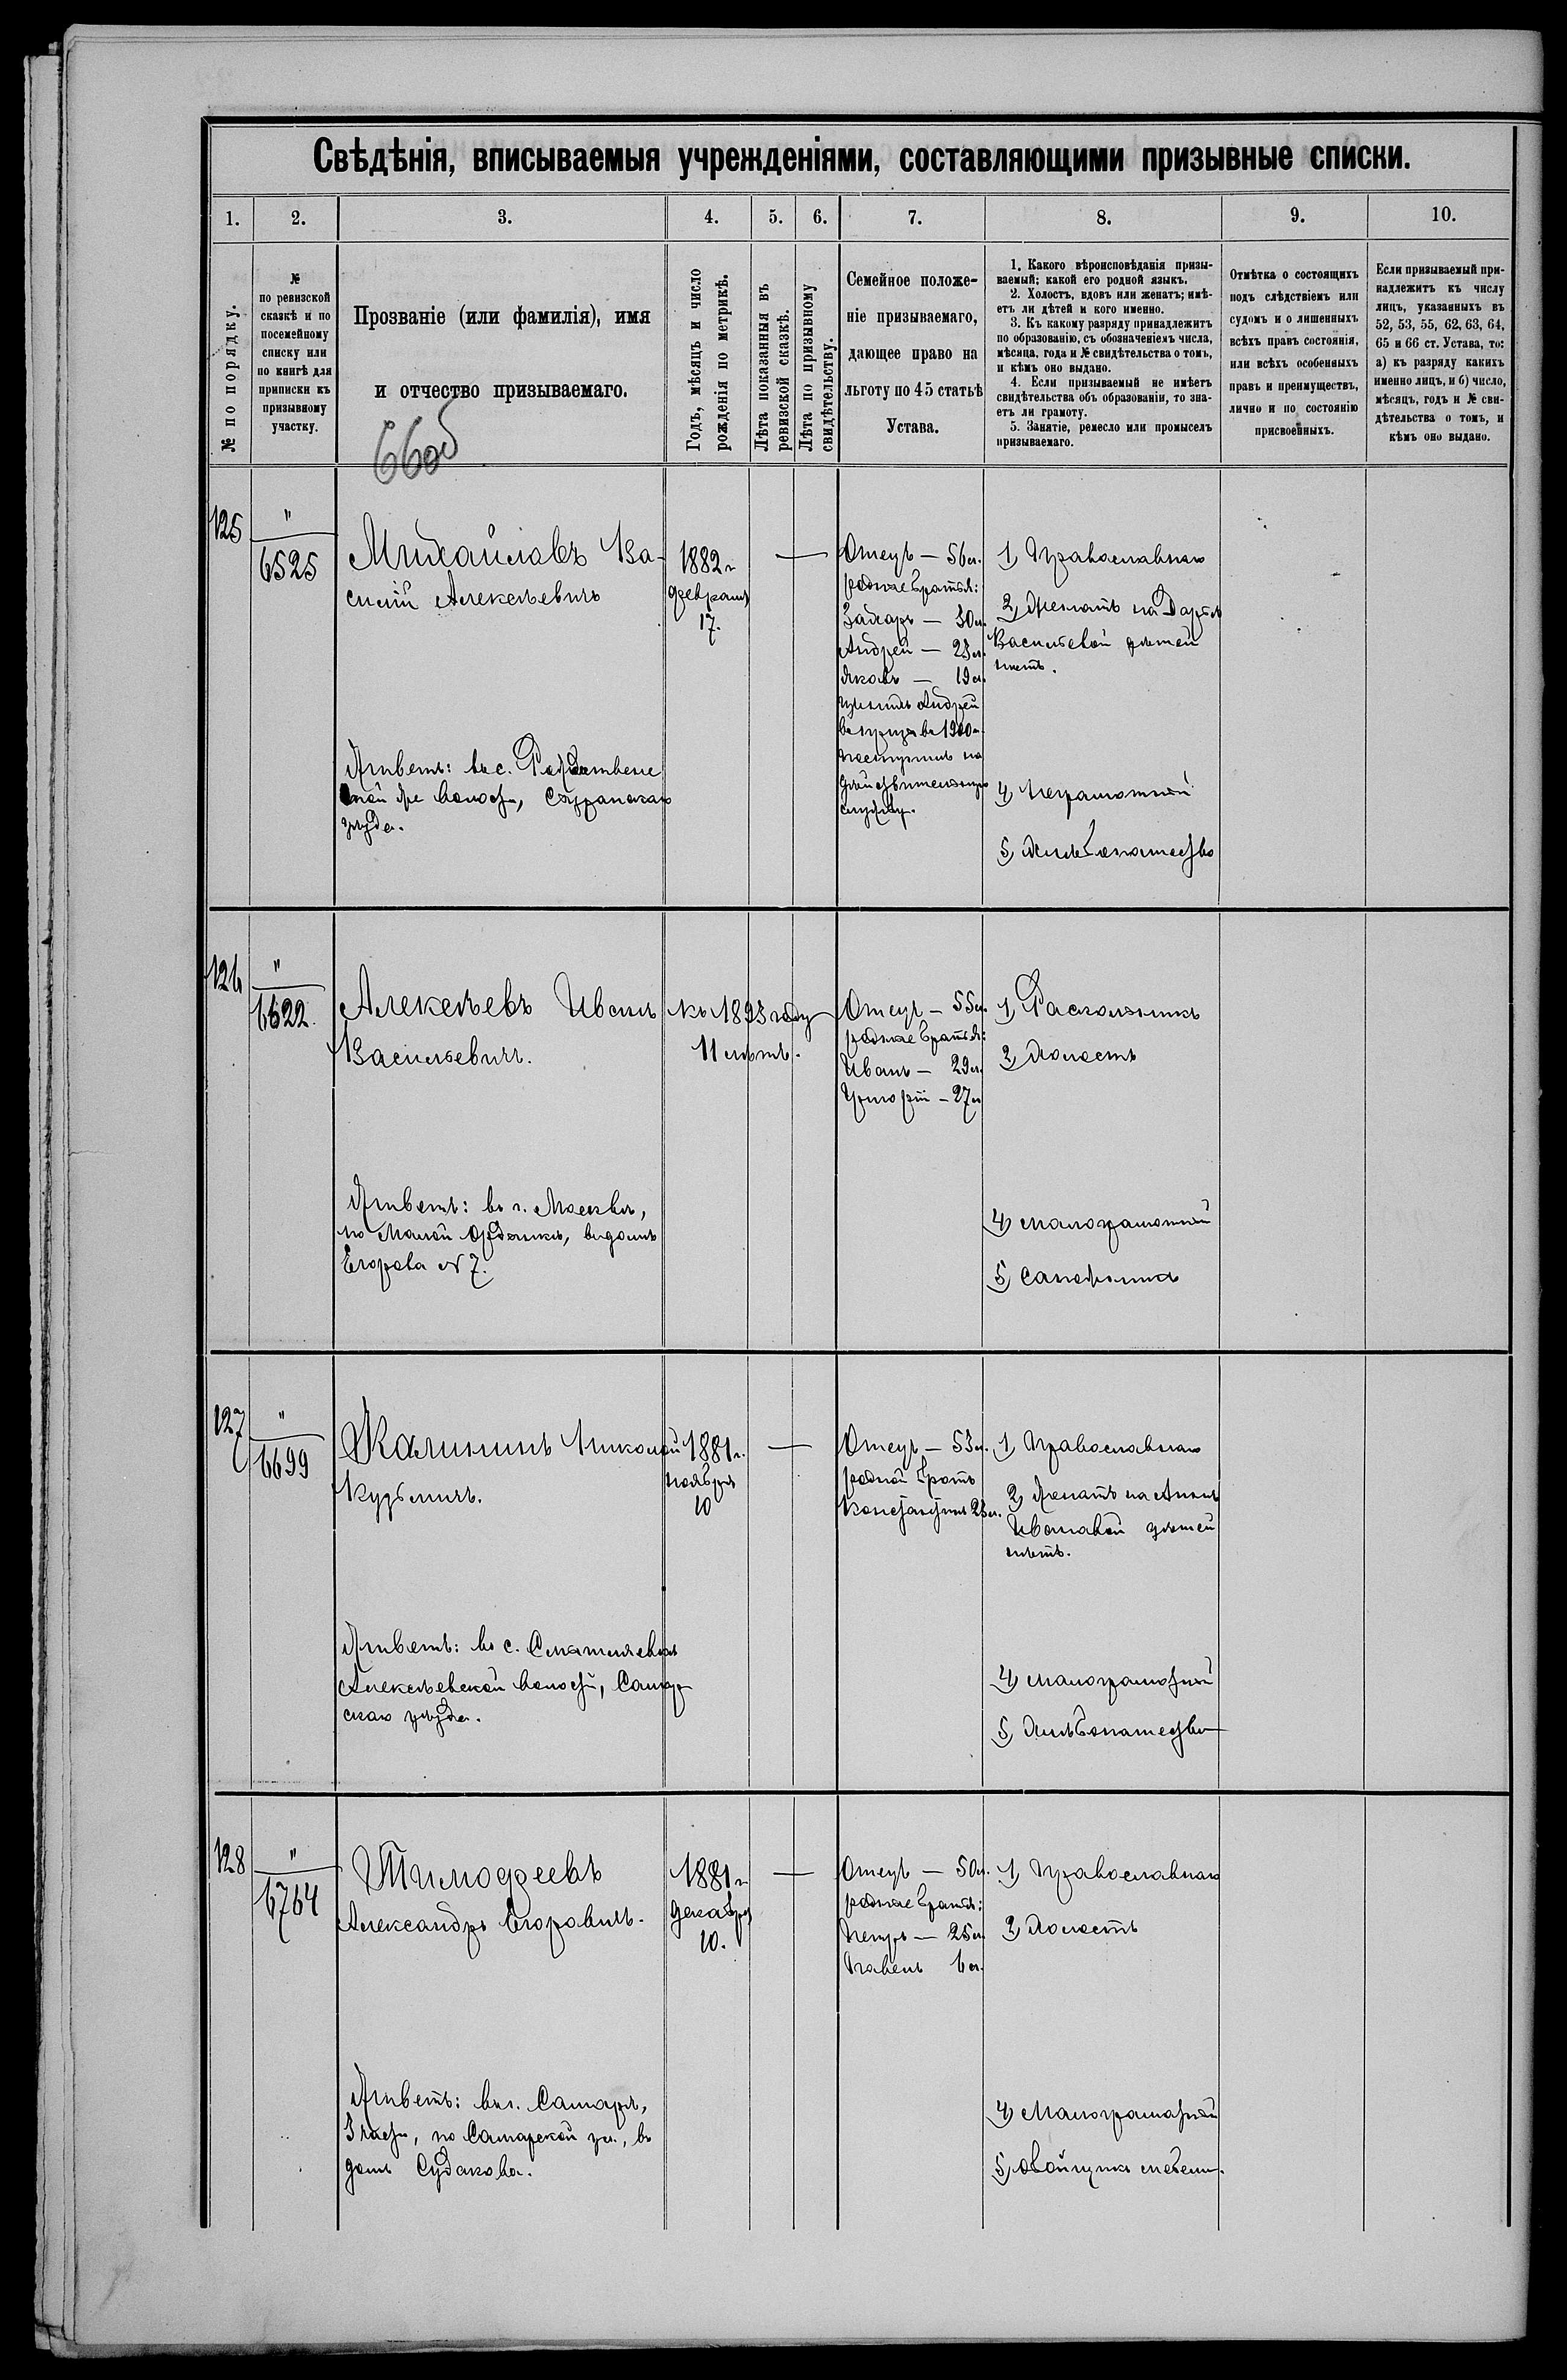 Свѣдѣнія, вписываемыя учрежденіями, составляющими призывные списки.
1. 2. 3. 4. 5. 6. 7. 8. 9. 10.
№ по порядку.
№
по ревизской
сказкѣ и по
посемейному
списку или
по книгѣ для
приписки къ
призывному
участку.
Прозваніе (или фамилія), имя
и отчество призываемаго.
Годъ, мѣсяцъ и число
рожденія по метрикѣ.
Лѣта показанныя въ
ревизской сказкѣ.
Лѣта по призывному
свидѣтельству.
Семейное положе-
ніе призываемаго,
дающее право на
льготу по 45 статьѣ
Устава.
1. Какого вѣроисповѣданія призы-
ваемый; какой его родной языкъ.
2. Холостъ, вдовъ или женатъ; имѣ-
етъ ли дѣтей и кого именно.
3. Къ какому разряду принадлежитъ
по образованію, съ обозначеніемъ числа,
мѣсяца, года и № свидѣтельства о томъ,
и кѣмъ оно выдано.
4. Если призываемый не имѣетъ
свидѣтельства объ образованіи, то зна-
етъ ли грамоту.
5. Занятіе, ремесло или промыселъ
призываемаго.
Отмѣтка о состоящихъ
подъ слѣдствіемъ или
судомъ и о лишенныхъ
всѣхъ правъ состоянія,
или всѣхъ особенныхъ
правъ и преимуществъ,
лично и по состоянію
присвоенныхъ.
Если призываемый при-
надлежитъ къ числу
лицъ, указанныхъ въ
52, 53, 55, 62, 63, 64,
65 и 66 ст. Устава, то:
а) къ разряду какихъ
именно лицъ, и б) число,
мѣсяцъ, годъ и № сви-
дѣтельства о томъ, и
кѣмъ оно выдано.
125
"
6525
Михайловъ Ва-
силій Алексѣевичъ
Живетъ: въ с. Рождествене
той же волости, Сызранскаго
уѣзда.
1882 г
февраля
17.
—
Отецъ — 56 л.
родные братья:
Захаръ — 30 л.
Андрей — 23 л.
Яковъ — 19 л.
Андрей
въ 1900 г.
поступилъ на
дѣйствительную
службу.
1) Православнаго
2) Женатъ на Дарьѣ
Васильевой дѣтей
нѣтъ.
4) Неграмотный
5) Хлѣбопашество
126
"
6622
Алексѣевъ Иванъ
Васильевичъ.
Живетъ: въ г. Москвѣ,
по Малой Ордынкѣ, въ домѣ
Егорова № 7.
къ 1893 году
11 лѣтъ.
Отецъ — 55 л.
родные братья:
Иванъ — 29 л.
Григорій — 27 л
1) Раскольникъ
2) Холостъ
4) малограмотный
5) Сапожникъ
127
"
6699
Калининъ Николай
Кузьмичъ.
Живетъ:  въ с.
Алексѣевской волости, Самар-
скаго уѣзда.
1881 г.
ноября
10
—
Отецъ — 53 л.
родной братъ
Константинъ 23 л.
1) Православнаго
2) Женатъ на Аннѣ
Ивановой дѣтей
нѣтъ.
4) малограмотный
5) Хлѣбопашество
128
"
6764
Тимофеевъ
Александръ Егоровичъ.
Живетъ: въ г. Самарѣ,
3 части, по Самарской ул., въ
домѣ Судакова.
1881 г
декабря
10.
—
Отецъ — 50 л.
родные братья:
Петръ — 25 л.
Павелъ 6 л.
1) Православнаго
2) Холостъ
4) Малограмотный
5) Обойщикъ мебели.